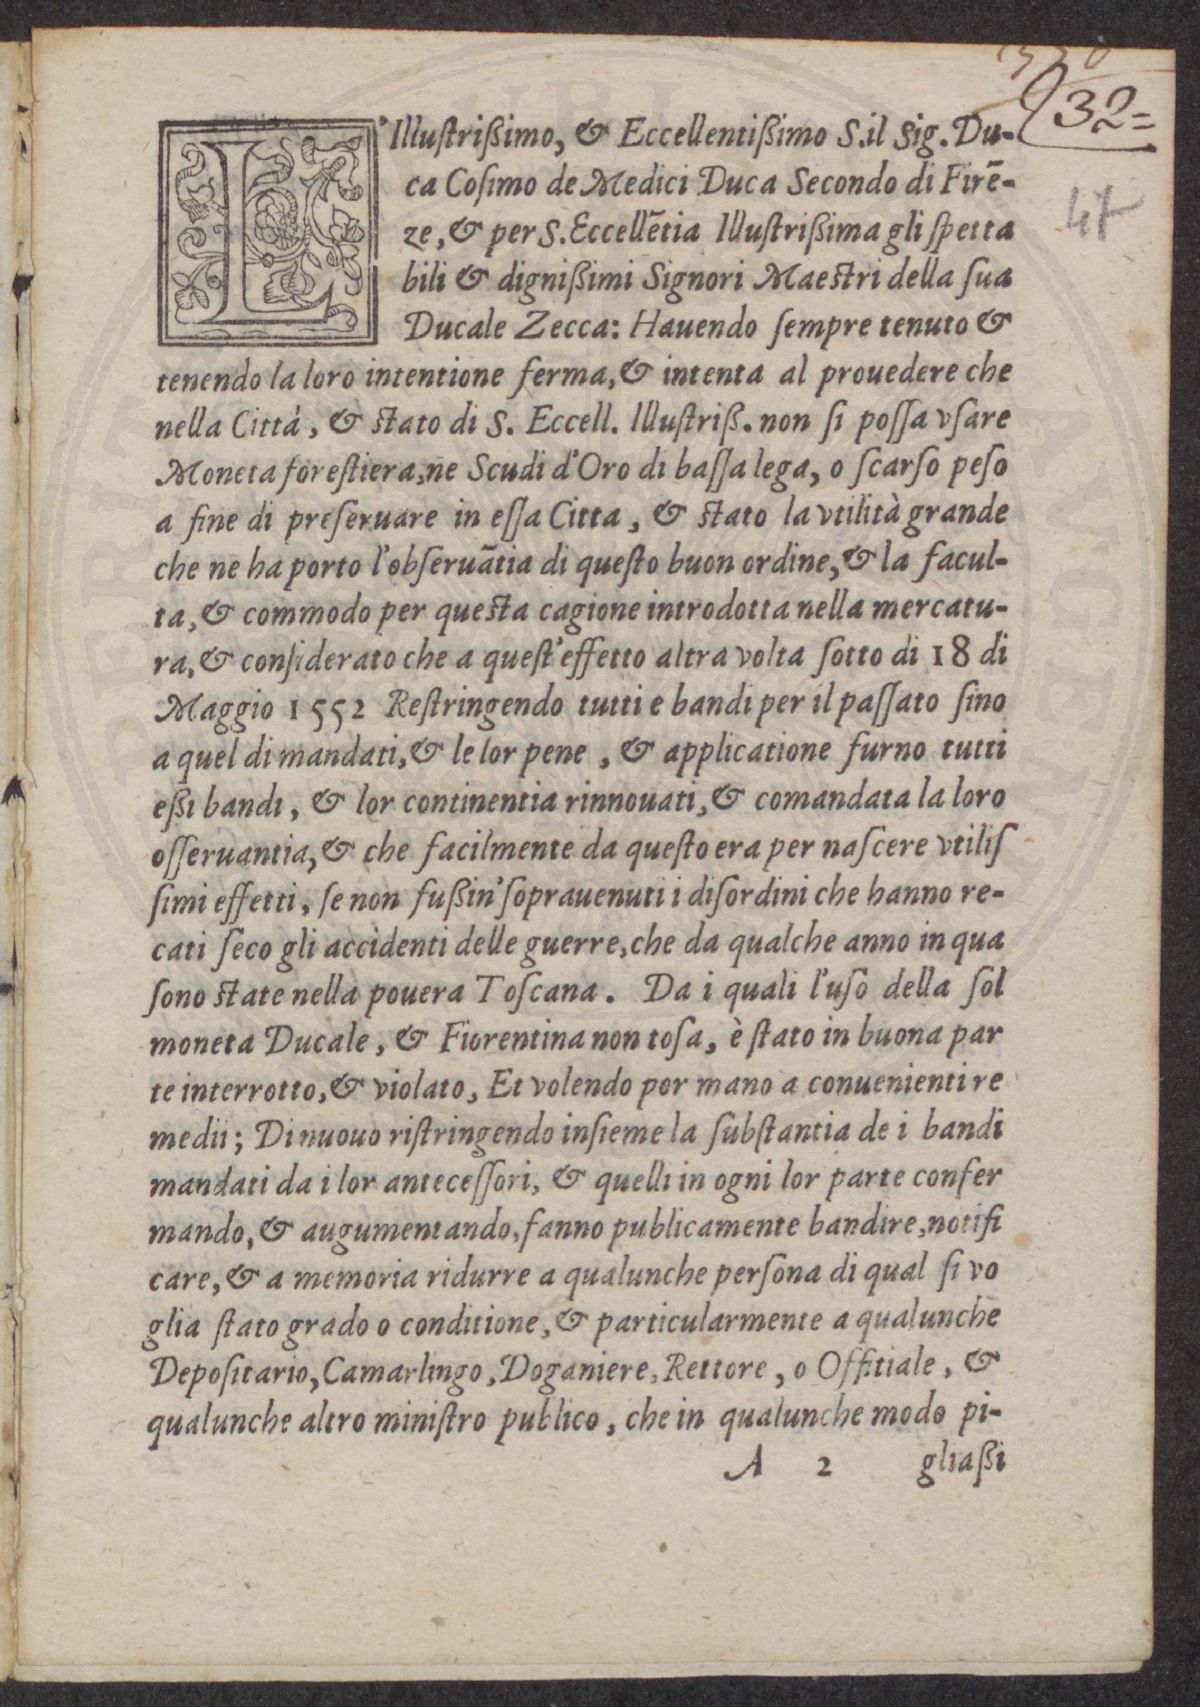 530
32=
47
L'Illustrißimo, & Eccellentißimo S.il Sig. Du-
ca Cosimo de Medici Duca Secondo di Firē-
ze, & per S. Eccellētia Illustrißima gli spetta
bili & dignißimi Signori Maestri della sua
Ducale Zecca: Hauendo sempre tenuto &
tenendo la loro intentione ferma, & intenta al prouedere che
nella Città, & stato di S. Eccell. Illustriß. non si possa vsare
Moneta forestiera, ne Scudi d'Oro di bassa lega, o scarso peso
a fine di preseruare in essa Citta, & stato la vtilità grande
che ne ha porto l'obseruātia di questo buon ordine, & la facul-
ta, & commodo per questa cagione introdotta nella mercatu-
ra, & considerato che a quest'effetto altra volta sotto di 18 di
Maggio 1552 Restringendo tutti e bandi per il passato sino
a quel di mandati, & le lor pene, & applicatione furno tutti
eßi bandi, & lor continentia rinnouati, & comandata la loro
osseruantia, & che facilmente da questo era per nascere vtilis
simi effetti, se non fußin' soprauenuti i disordini che hanno re-
cati seco gli accidenti delle guerre, che da qualche anno in qua
sono state nella pouera Toscana. Da i quali l'uso della sol
moneta Ducale, & Fiorentina non tosa, è stato in buona par
te interrotto, & violato, Et volendo por mano a conuenienti re
medii; Di nuouo ristringendo insieme la substantia de i bandi
mandati da i lor antecessori, & quelli in ogni lor parte confer
mando, & augumentando, fanno publicamente bandire, notifi
care, & a memoria ridurre a qualunche persona di qual si vo
glia stato grado o conditione, & particularmente a qualunche
Depositario, Camarlingo, Doganiere, Rettore, o Offitiale, &
qualunche altro ministro publico, che in qualunche modo pi-
A 2 gliaßi